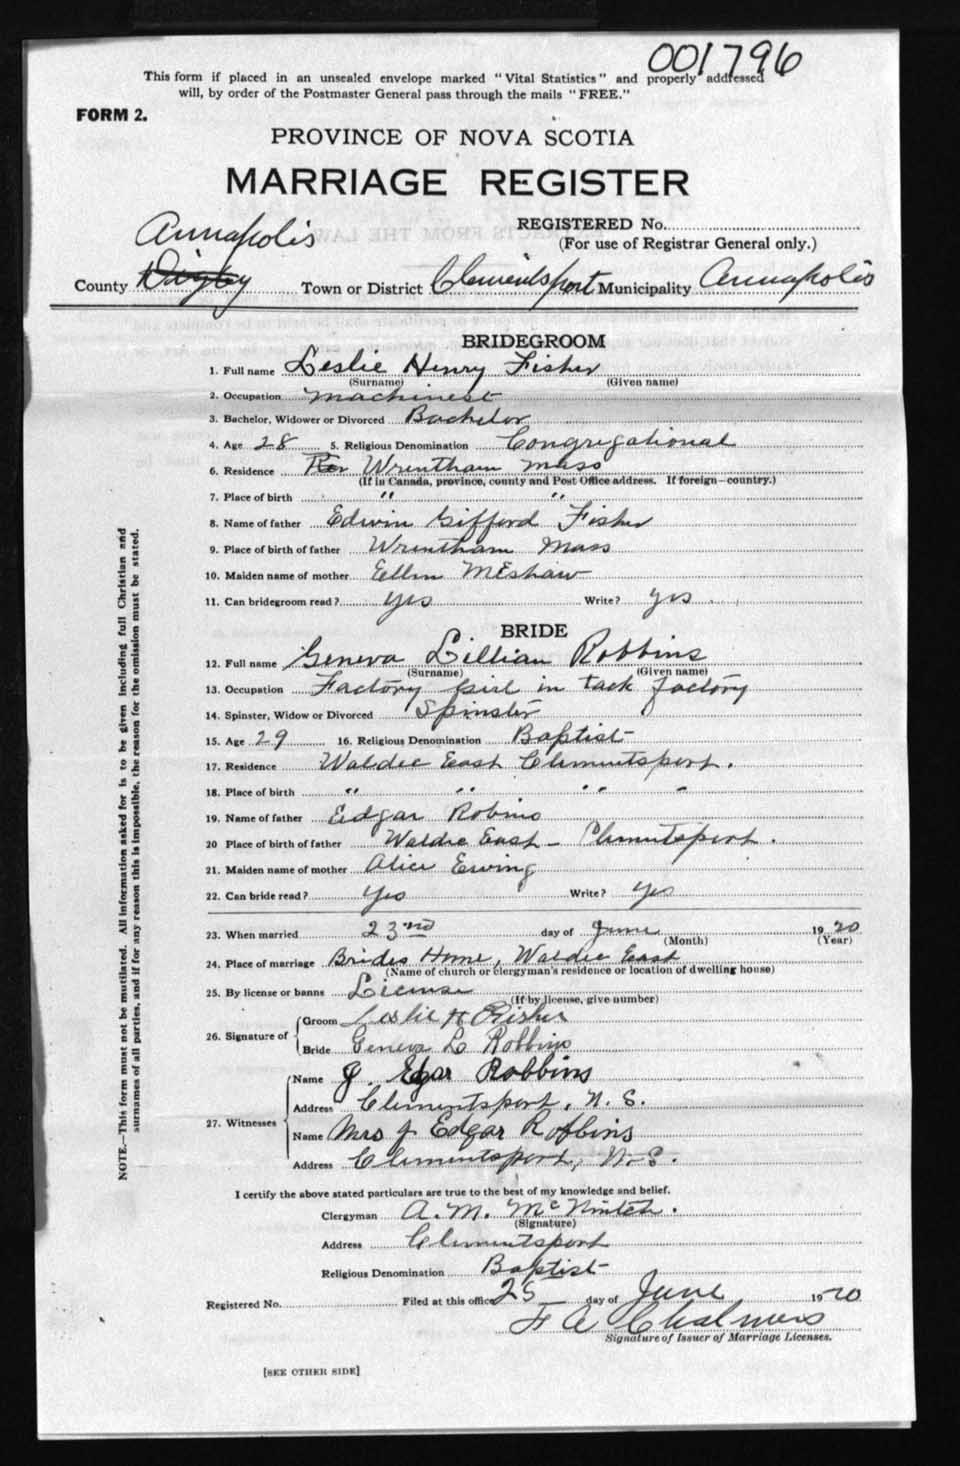 001796
This form if placed in an unsealed envelope marked "Vital Statistics" and properly addressed
will, by order of the Postmaster General pass through the mails "FREE."
FORM 2.
PROVINCE OF NOVA SCOTIA
MARRIAGE REGISTER
REGISTERED No.
(For use of Registrar General only.)
Annapolis
County Digby Town or District Clementsport Municipality Annapolis
BRIDEGROOM
1. Full name Leslie Henry Fisher
(Surname) (Given name)
2. Occupation Machinest
3. Bachelor, Widower or Divorced Bachelor
4. Age 28 5. Religious Denomination Congregational
6. Residence Wrentham Mass
(If in Canada, province, county and Post Office address. If foreign—country.)
7. Place of birth " "
8. Name of father Edwin Gifford Fisher
9. Place of birth of father Wrentham Mass
10. Maiden name of mother Ellen
11. Can bridegroom read? yes Write? yes
BRIDE
12. Full name Geneva Lillian Robbins
(Surname) (Given name)
13. Occupation Factory Girl in tack factory
14. Spinster, Widow or Divorced Spinster
15. Age 29 16. Religious Denomination Baptist
17. Residence Waldec East Clementsport.
18. Place of birth " " " "
19. Name of father Edgar Robins
20 Place of birth of father Waldec East - Clementsport.
21. Maiden name of mother Alice Ewing
22. Can bride read? Yes Write? yes
23. When married 23rd day of June 1920
(Month) (Year)
24. Place of marriage Brides Home, Waldec East
(Name of church or clergyman's residence or location of dwelling house)
25. By license or banns License
(If by license, give number)
26. Signature of Groom Leslie H Fisher
Bride Geneva L Robbins
27. Witnesses
Name J. Edgar Robbins
Address Clementsport, N. S.
Name Mrs J Edgar Robbins
Address Clementsport, N. S.
I certify the above stated particulars are true to the best of my knowledge and belief.
Clergyman A. M. McNintch.
(Signature)
Address Clementsport
Religious Denomination Baptist
Registered No. Filed at this office 25 day of June 1920
F A Chalmers
Signature of Issuer of Marriage Licenses.
[SEE OTHER SIDE]
NOTE.—This form must not be mutilated. All information asked for is to be given including full Christian and
surnames of all parties, and if for any reason this is impossible, the reason for the omission must be stated.